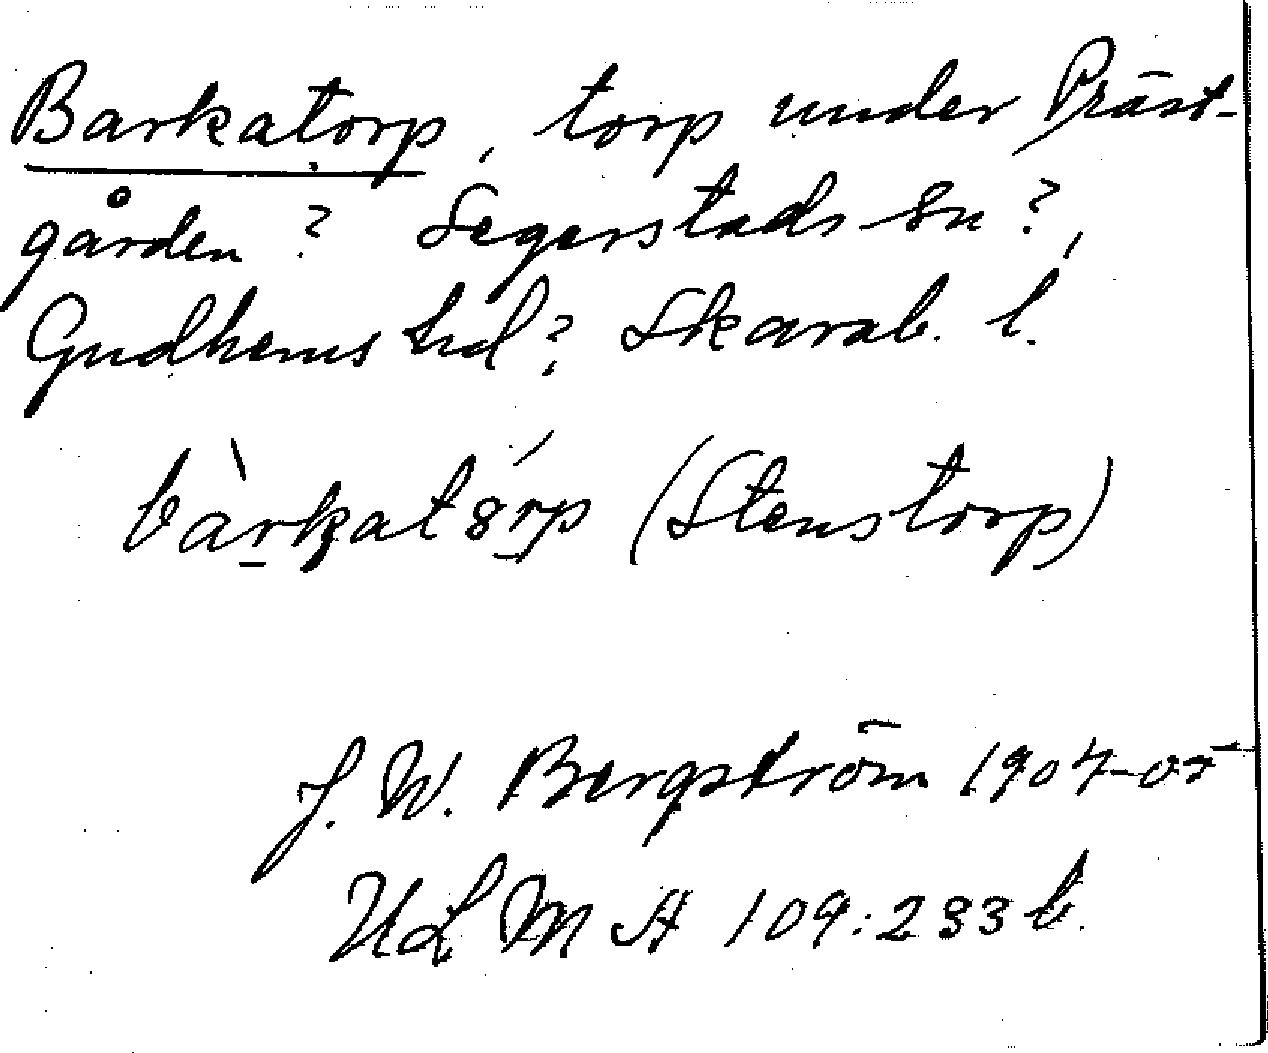 Barkatorp, torp under Präst-
gården? Segerstads sn?,
Gudhems hd? Skarab. l.
bàrkatórp (Stenstorp)
J. W. Bergström 1904-05
ULMA 109:233 b.